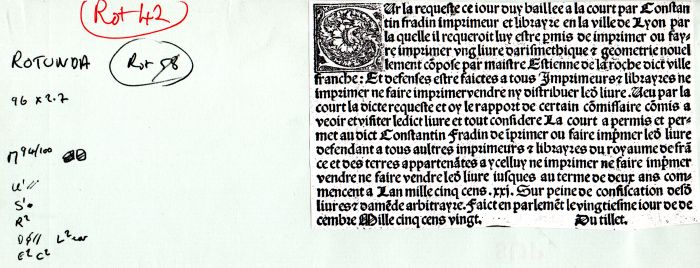 Rot 42
ROTUNDA
Rot 98
96 x 2.7
M 94/100
U'//
S'
R²
D
L² var
E² C²
Ur la requeste ce iour duy baillee a la court par Constan
tin fradin imprimeur et librayre en la ville de Lyon par
la quelle il requeroit luy estre p̱mis de imprimer ou fay⸗
re imprimer vng liure darismethique ⁊ geometrie nouel
lement cōpose par maistre Estienne de la roche dict ville
franche: Et defenses estre faictes a tous Imprimeurs ⁊ librayres ne
imprimer ne faire imprimer vendre ny distribuer led̄ liure. Ueu par la
court la dicte requeste et oy le rapport de certain cōmissaire cōmis a
veoir et visiter ledict liure et tout considere La court a permis et per⸗
met au dict Constantin Fradin de īprimer ou faire imp̄mer led̄ liure
defendant a tous aultres imprimeurs ⁊ librayres du royaume de frā
ce et des terres appartenātes a ycelluy ne imprimer ne faire imp̄mer
vendre ne faire vendre led̄ liure iusques au terme de deux ans com⸗
mencent a Lan mille cinq cens .xxj. Sur peine de confiscation desd̄
liures ⁊ damēde arbitrayre. Faict en parlemēt le vingtiesme iour de de
cembre Mille cinq cens vingt. Du tillet.